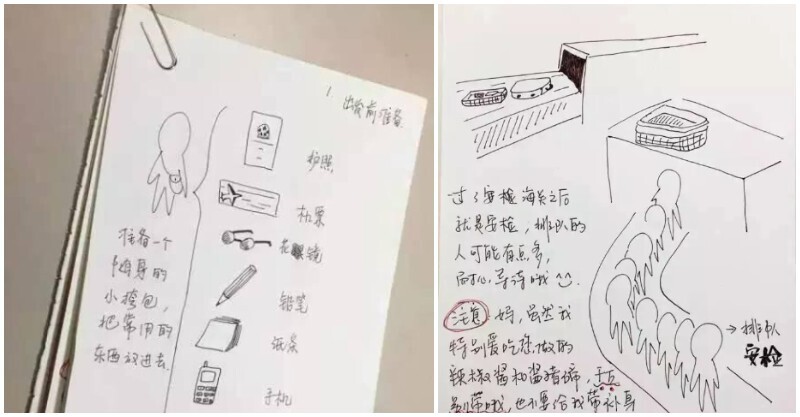 1. 出发前准备
准备一个
随身的
小挎包,
把常用的
东西放进去.
护照
机票
花眼镜
铅笔
纸条
手机
过了安检海关之后
就是安检, 排队的
人可能有点多,
耐心等待哦
注意 妈, 虽然我
特别爱吃您做的
辣椒酱和酱猪蹄, 千万
别带哦, 也不要给我带补身
→排队
安检